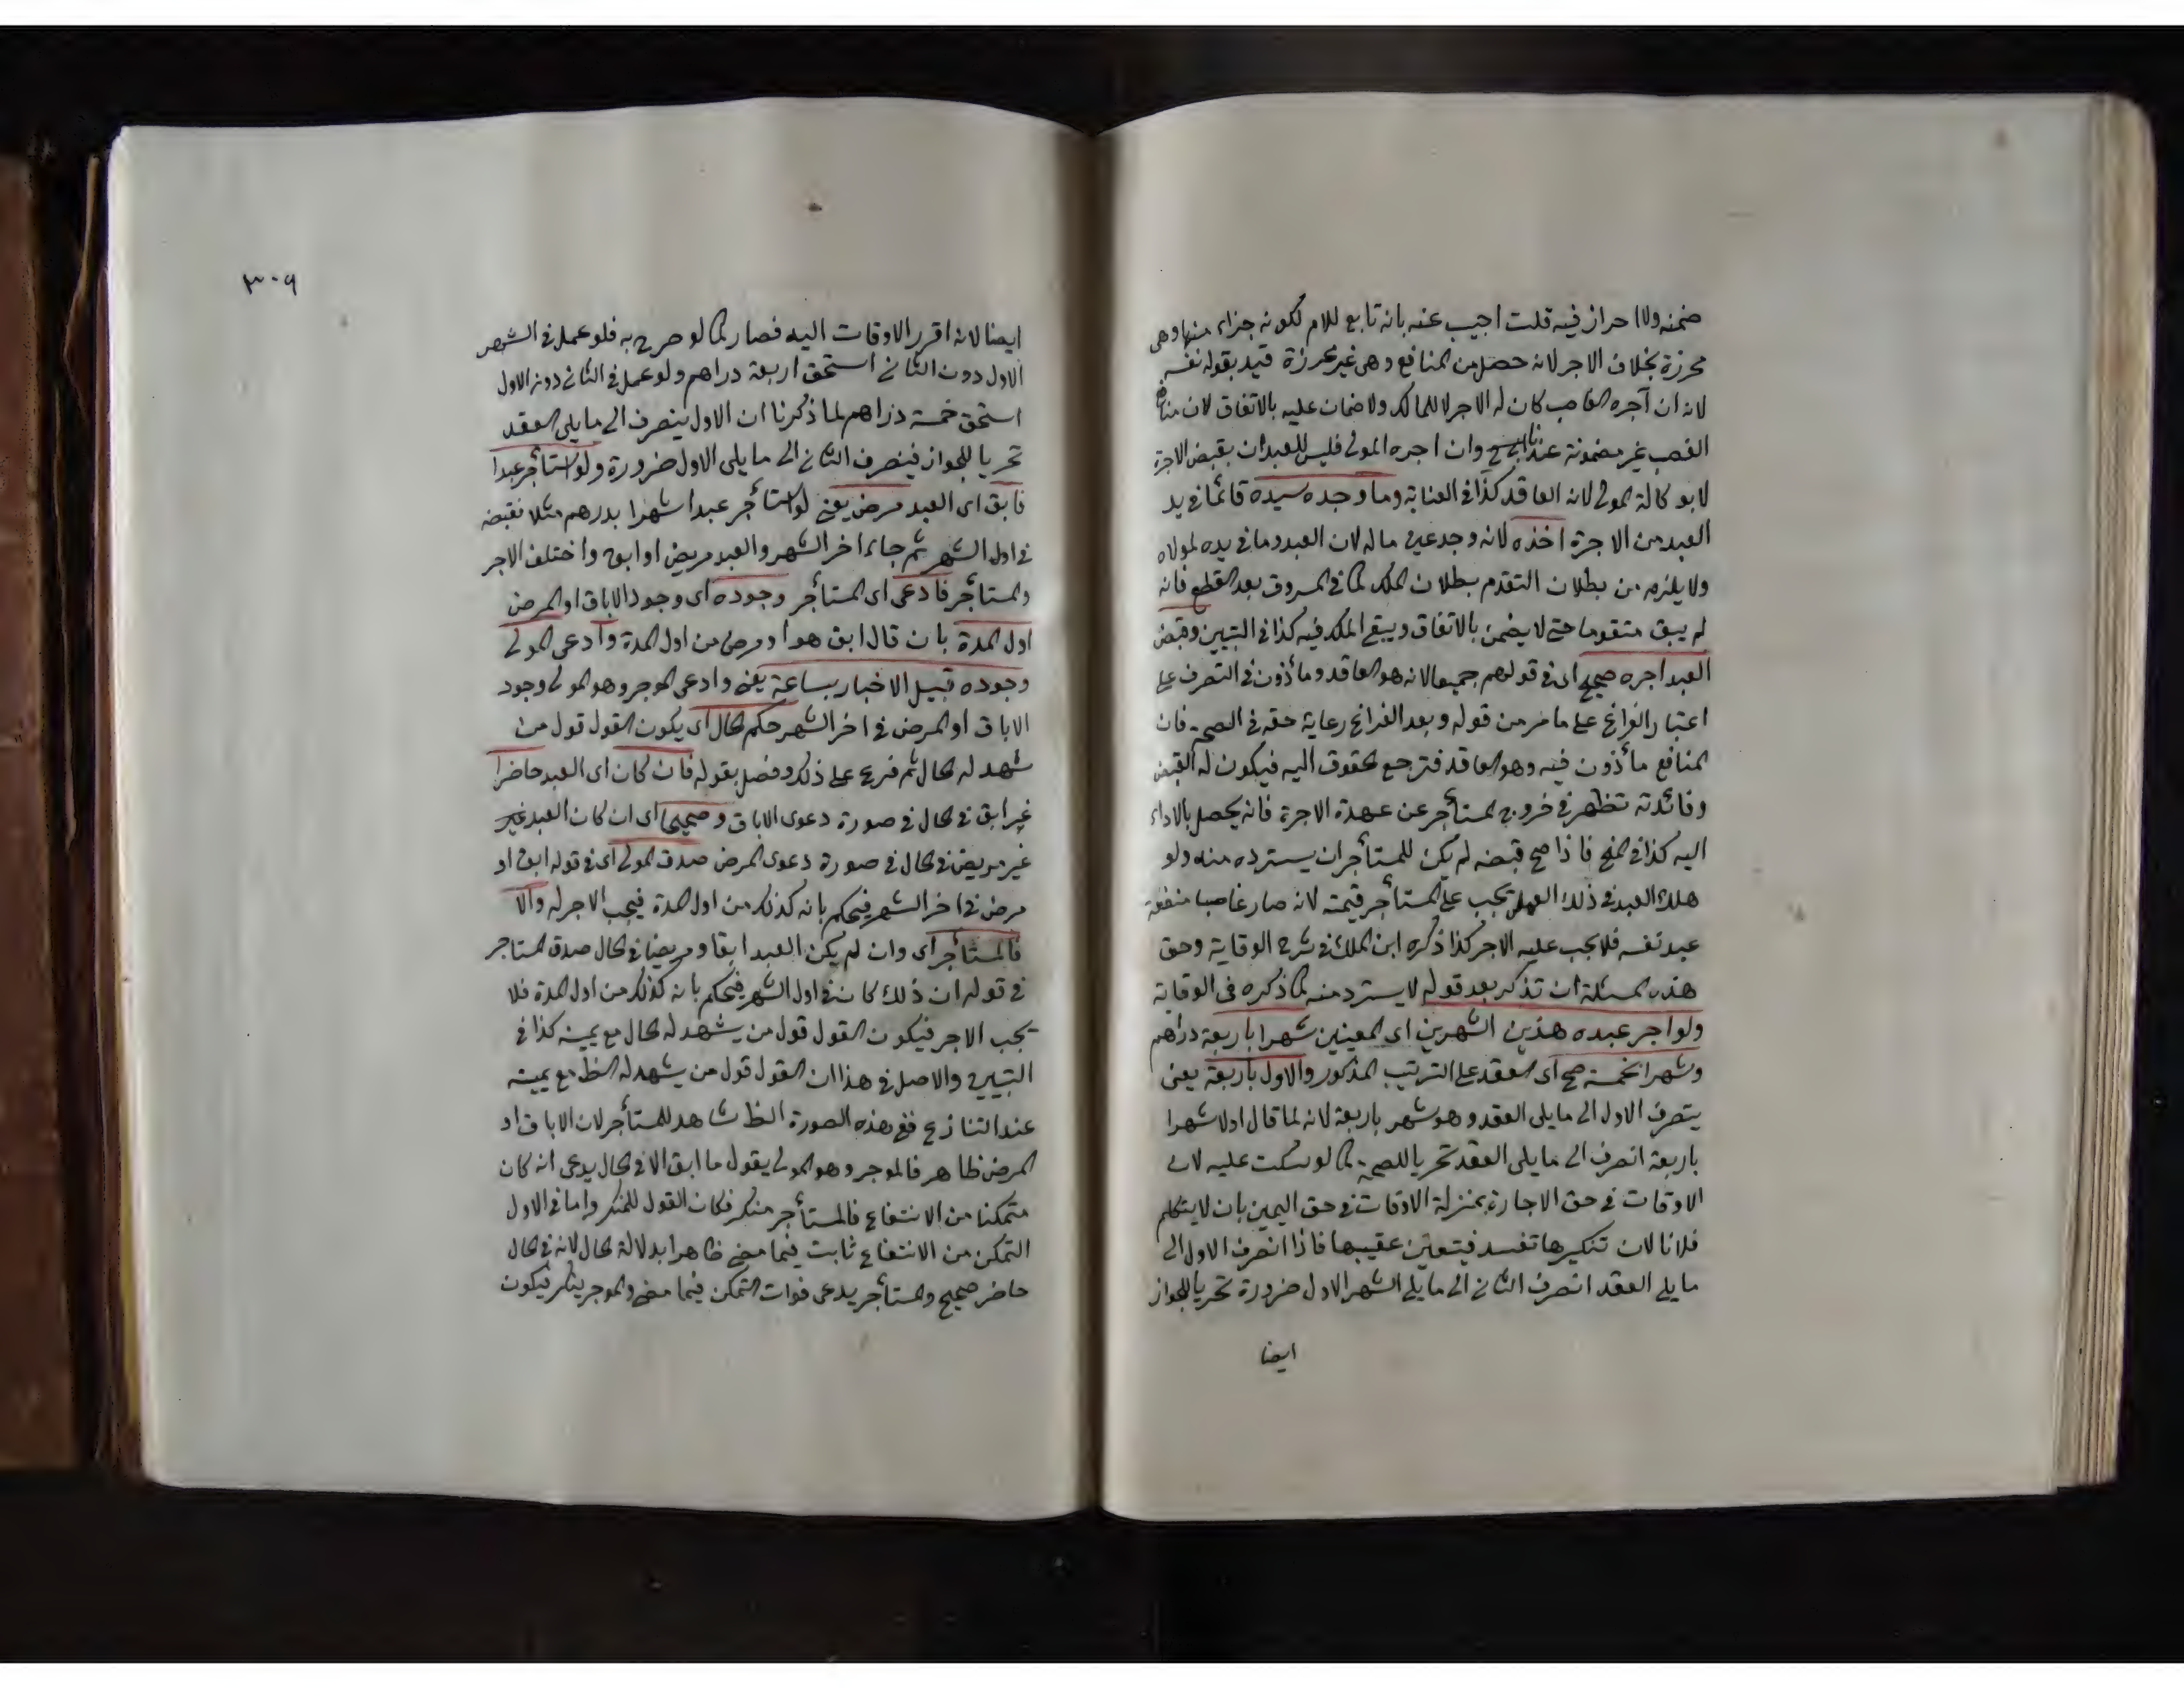 ضمنه ولا احراز فيه قلت اجيب عنه بانه تابع للام لكونه جزاء منها وهى
محرزة بخلاف الاجر لانه حصل من المنافع وهى غير محرزة قيد بقوله نفسه
لانه ان آجره الغاصب كان له الاجر لا للمالك ولا ضمان عليه بالاتفاق لان منافع
الغصب غير مضمونة عندنا وان اجره المولى فليس للعبد ان يقبض الاجرة
لا بوكالة المولى لانه العاقد كذا فى العناية وما وجده سيده قائما فى يد
العبد من الاجرة اخذه لانه وجد عين ماله لان العبد وما فى يده لمولاه
ولا يلزم من بطلان التقدم بطلان الملك كما فى المسروق بعد القطع فانه
لم يبق متقوما حتى لا يضمن بالاتفاق ويبقى الملك فيه كذا فى التبيين وقبض
العبد اجره صحيح اى فى قولهم جميعا لانه هو العاقد ومأذون فى التصرف على
اعتبار الفراغ على ما مر من قوله وبعد الفراغ رعاية حقه فى الصحة فان
المنافع مأذون فيه وهو العاقد فترجع الحقوق اليه فيكون له القبض
وفائدته تظهر فى خروج المستأجر عن عهدة الاجرة فانه يحصل بالاداء
اليه كذا فى المنح فاذا صح قبضه لم يكن للمستأجر ان يسترده منه ولو
هلك العبد فى ذلك العمل تجب على المستأجر قيمته لانه صار غاصبا منفعة
عبد نفسه فلا يجب عليه الاجر كذا ذكره ابن الملك فى شرح الوقاية وحق
هذه المسئلة ان تذكر بعد قوله لا يسترد منه كما ذكره فى الوقاية
ولو اجر عبده هذين الشهرين اى المعينين شهرا باربعة دراهم
وشهرا بخمسة صح اى العقد على الترتيب المذكور والاول باربعة يعنى
يتصرف الاول الى ما يلى العقد وهو شهر باربعة لانه لما قال اولا شهرا
باربعة انصرف الى ما يلى العقد تحريا للصحة كما لو سكت عليه لان
الاوقات فى حق الاجارة بمنزلة الاوقات فى حق اليمين بان لا يتكلم
فلانا لان تنكيرها تفسد فيتعين عقيبها فاذا انصرف الاول الى
ما يلى العقد انصرف الثانى الى ما يلى الشهر الاول ضرورة تحريا للجواز
ايضا
٣٠٩
ايضا لانه اقرر الاوقات اليه فصار كما لو صرح به فلو عمل فى الشهر
الاول دون الثانى استحق اربعة دراهم ولو عمل فى الثانى دون الاول
استحق خمسة دراهم لما ذكرنا ان الاول ينصرف الى ما يلى العقد
تحريا للجواز فينصرف الثانى الى ما يلى الاول ضرورة ولو استأجر عبدا
فابق اى العبد مرض يعنى لو استأجر عبدا شهرا بدرهم مثلا فقبضه
فى اول الشهر ثم جاء اخر الشهر والعبد مريض او ابق واختلف الاجر
والمستأجر فادعى اى المستأجر وجوده اى وجود الاباق او المرض
اول المدة بان قال ابق هو او مرض من اول المدة وادعى المولى
وجوده قبيل الاخبار بساعة يعنى وادعى الموجر وهو المولى وجود
الاباق او المرض فى اخر الشهر حكم الحال اى يكون القول قول من
شهد له الحال ثم فرع على ذلك وفصل بقوله فان كان اى العبد حاضرا
غير ابق فى الحال فى صورة دعوى الاباق وصحيحا اى ان كان العبد غير
غير مريض فى الحال فى صورة دعوى المرض صدق المولى اى فى قوله ابق او
مرض فى اخر الشهر فيحكم بانه كذلك من اول المدة فيجب الاجر له والا
فالمستأجر اى وان لم يكن العبد ابقا ومريضا فى الحال صدق المستاجر
فى قوله ان ذلك كان فى اول الشهر فيحكم بانه كذلك من اول المدة فلا
يجب الاجر فيكون القول قول من يشهد له الحال مع يمينه كذا فى
التبيين والاصل فى هذا ان القول قول من يشهد له الظ مع يمينه
عند التنازع ففى هذه الصورة الظ شاهد للمستأجر لان الاباق او
المرض ظاهر فالموجر وهو المولى يقول ما ابق الا فى الحال يدعى انه كان
متمكنا من الانتفاع فالمستأجر منكر فكان القول للمنكر واما فى الاول
التمكن من الانتفاع ثابت فيما مضى ظاهرا بدلالة الحال لانه فى الحال
حاضر صحيح والمستأجر يدعى فوات التمكن فيما مضى والموجر ينكر فيكون